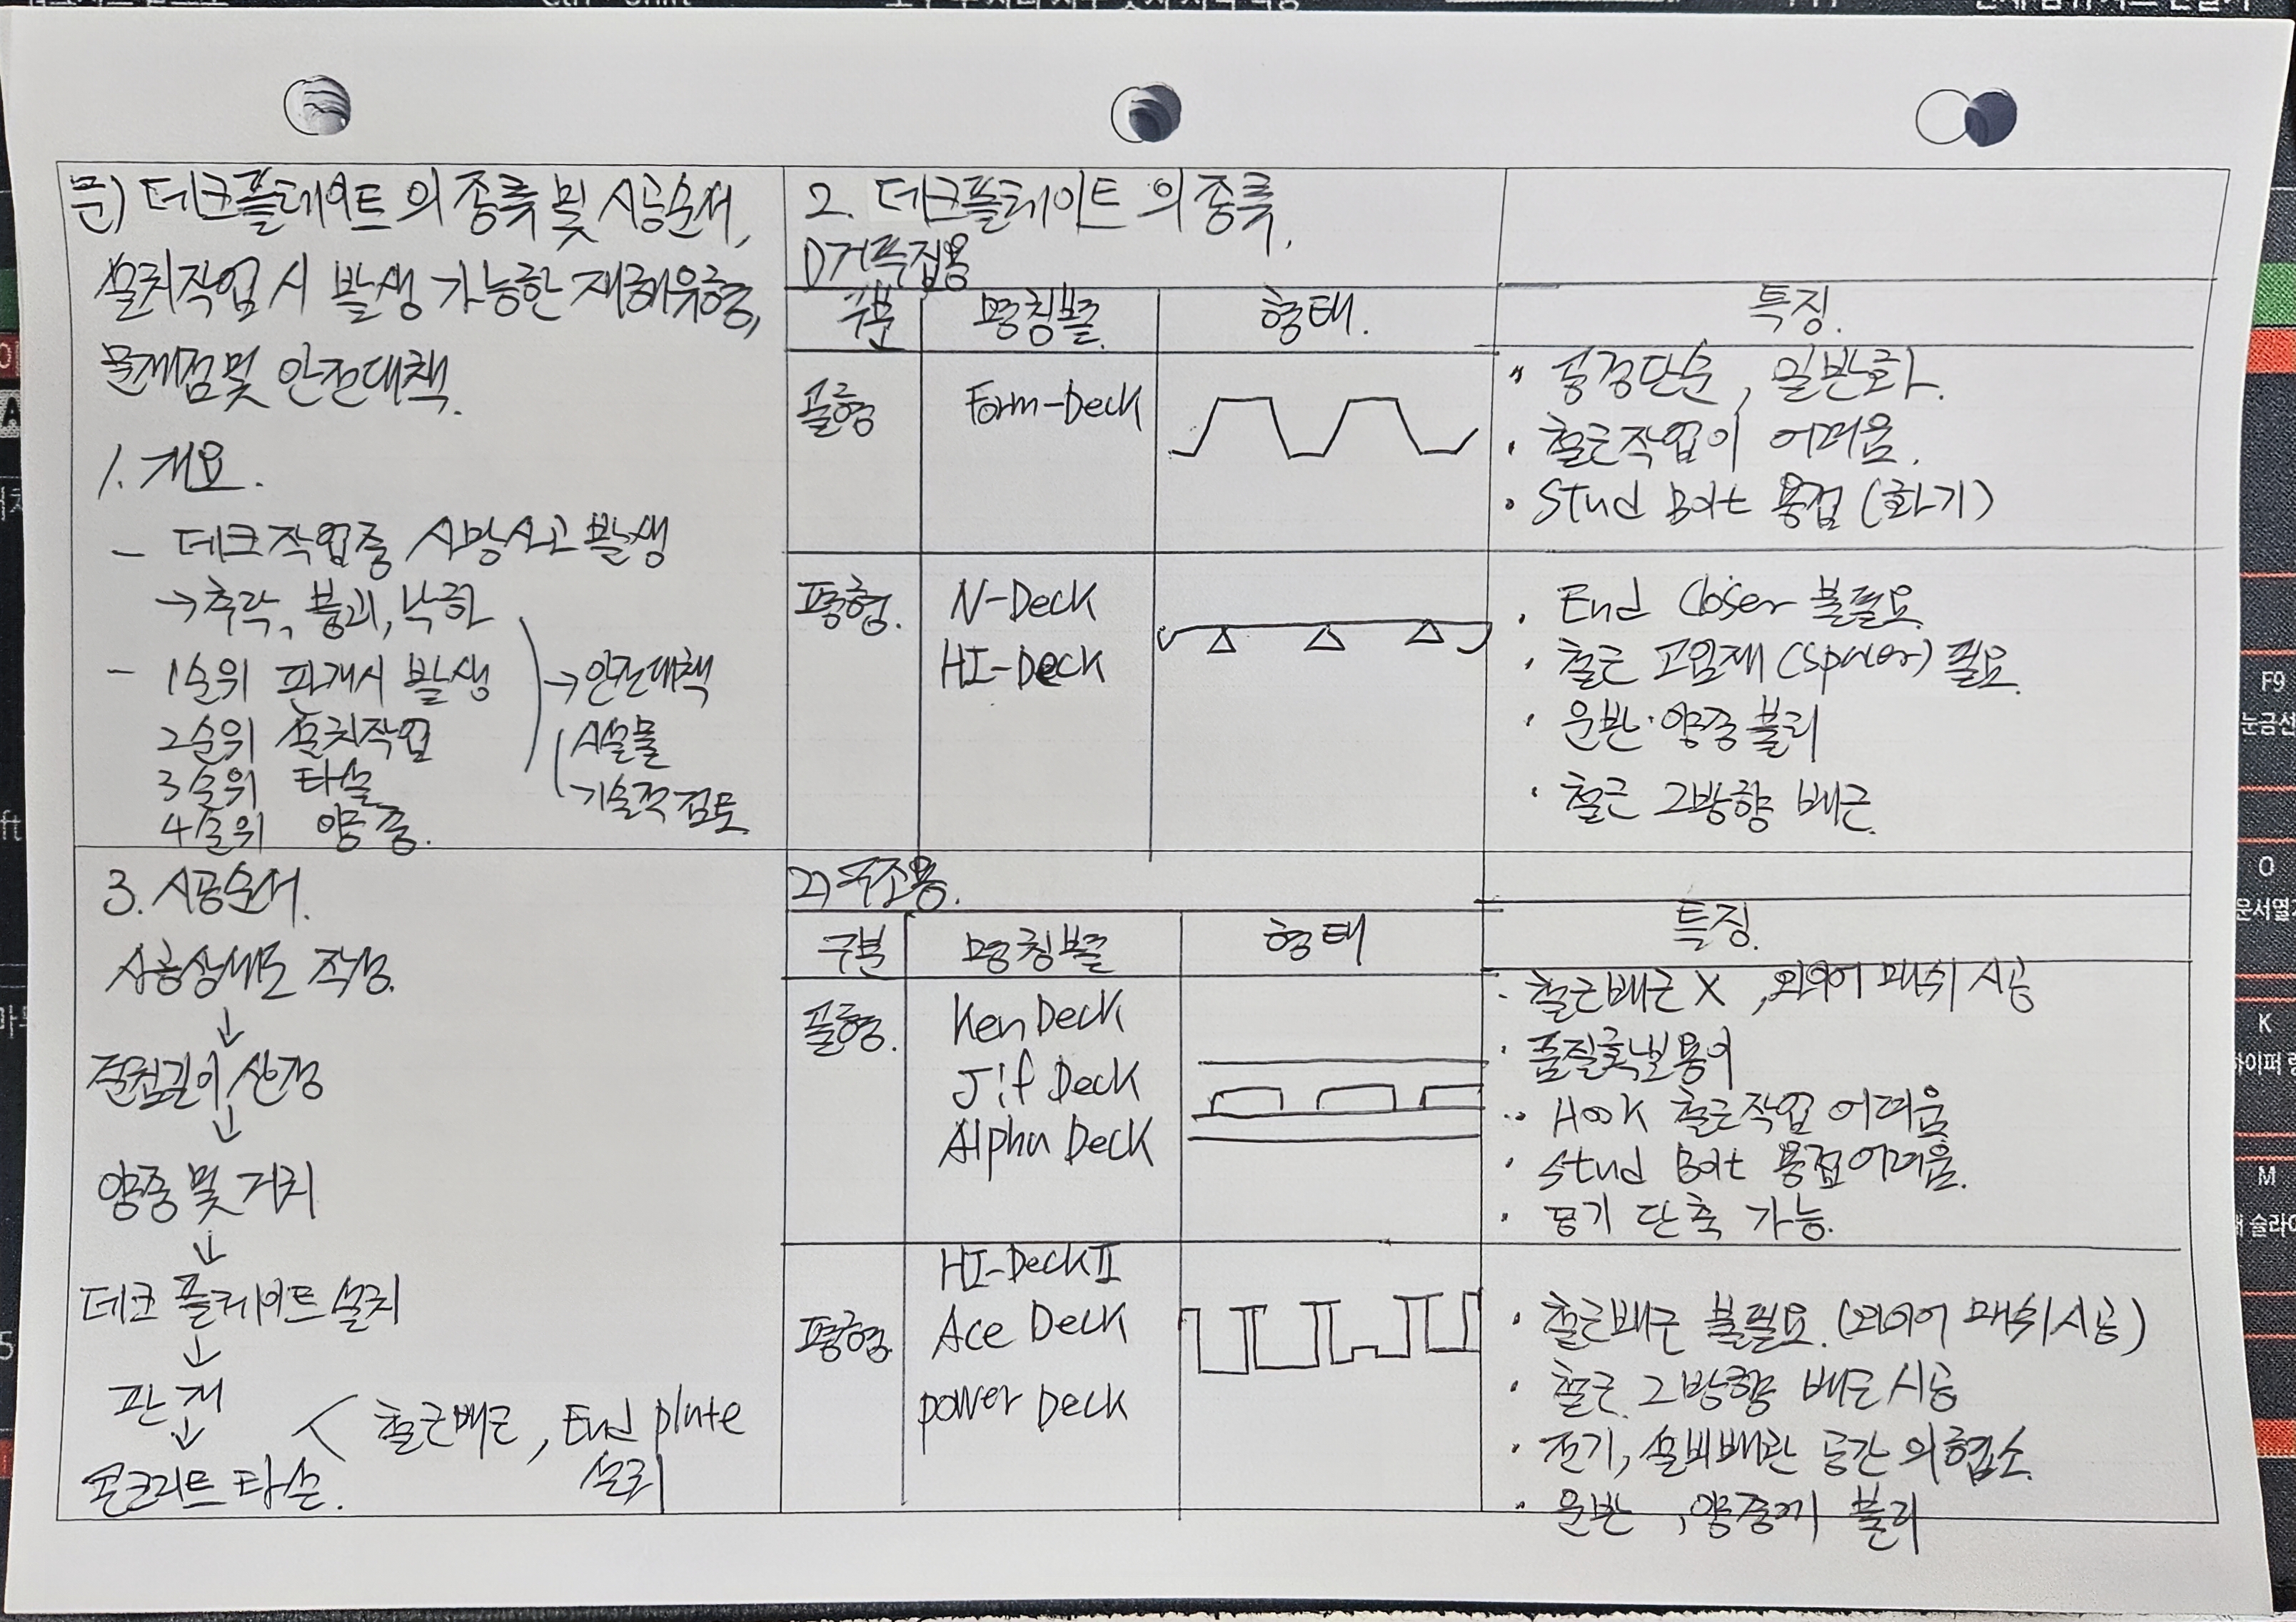 문) 데크플레이트의 종류 및 시공순서,
설치작업 시 발생 가능한 재해유형,
문제점 및 안전대책.
1. 개요.
- 데크작업중 사망사고 발생
→ 추락, 붕괴, 낙하
- 1순위 판개시 발생
2순위 설치작업
3순위 타설
4순위 양중.
→ 안전대책
시설물
기술적 검토
2. 데크플레이트의 종류.
1) 거푸집용
구분 명칭별. 형태. 특징.
골형 Form-Deck
" 공정단순, 일반화.
· 철근작업이 어려움.
· Stud Bolt 용접 (화기)
평형. N-Deck
HI-Deck
· End Closer 불필요.
· 철근 고임재 (spacer) 필요.
· 운반·양중 불리
· 철근 2방향 배근.
3. 시공순서.
시공상세도 작성.
↓
걸침길이 산정
↓
양중 및 거치
↓
데크 플레이트 설치
↓
판개
↓
< 철근배근, End plate
설치
콘크리트 타설.
2) 구조용.
구분 명칭별 형태 특징.
골형. Ken Deck
Jif Deck
Alpha Deck
· 철근배근 X, 와이어 매쉬 시공
· 품질확보용이
· Hook 철근작업 어려움
· Stud Bolt 용접어려움.
· 공기 단축 가능.
평형. HI-Deck II
Ace Deck
power Deck
· 철근배근 불필요. (와이어 매쉬시공)
· 철근 2방향 배근시공
· 전기, 설비배관 공간의 협소.
· 운반, 양중시 불리